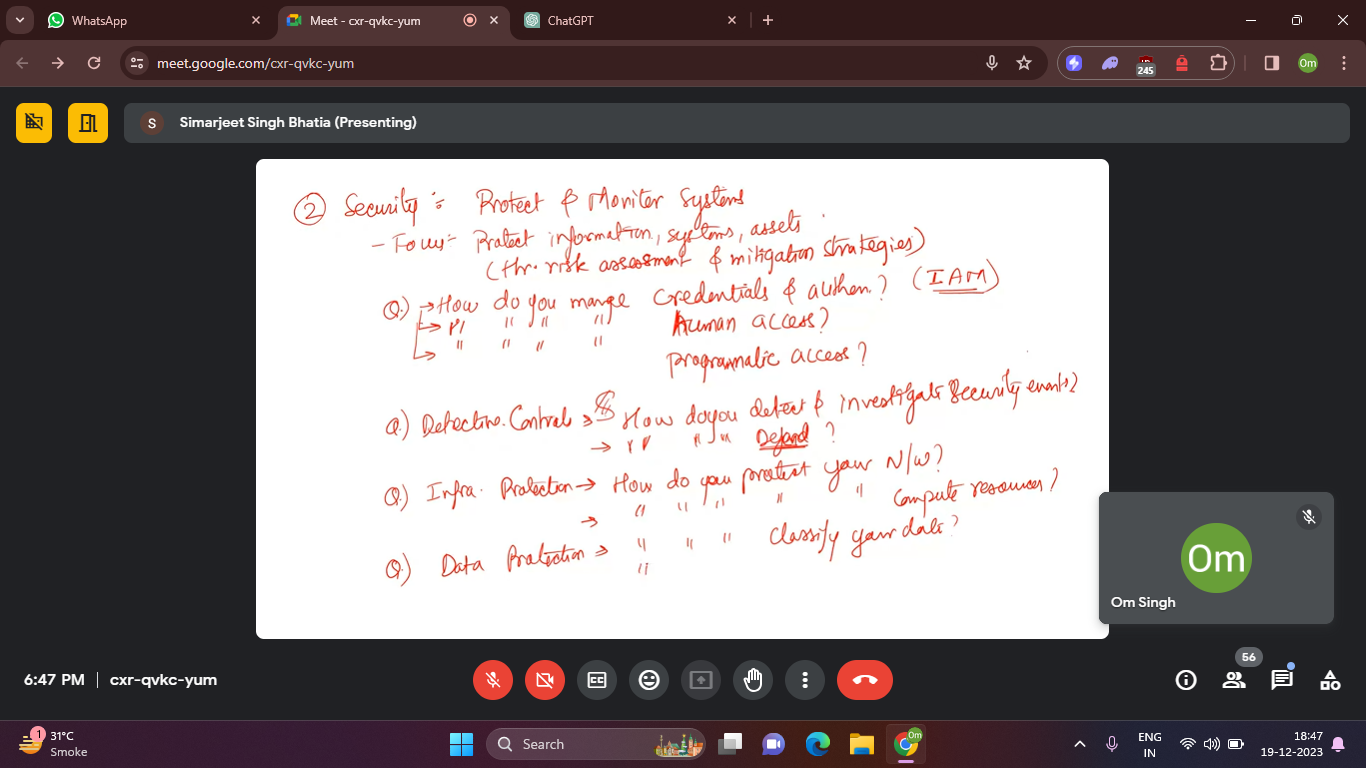 WhatsApp
Meet - cxr-qvkc-yum
ChatGPT
meet.google.com/cxr-qvkc-yum
245
Om
S
Simarjeet Singh Bhatia (Presenting)
② Security :- Protect & Moniter Systems
- Focus:- Protect information, systems, assets
(thr. risk assessment & mitigation strategies)
Q.) → How do you mange credentials & authen.? (IAM)
→ " " " " Human access?
→ " " " " programmatic access?
Q.) Detective Controls → How do you detect & investigate security events?
→ " " " " Defend ?
Q.) Infra. Protection → How do you protect your N/W?
→ " " " " " Compute resources?
Q.) Data Protection → " " " Classify your data?
"
Om
Om Singh
6:47 PM
cxr-qvkc-yum
56
1
31°C
Smoke
Search
Om
ENG
IN
18:47
19-12-2023